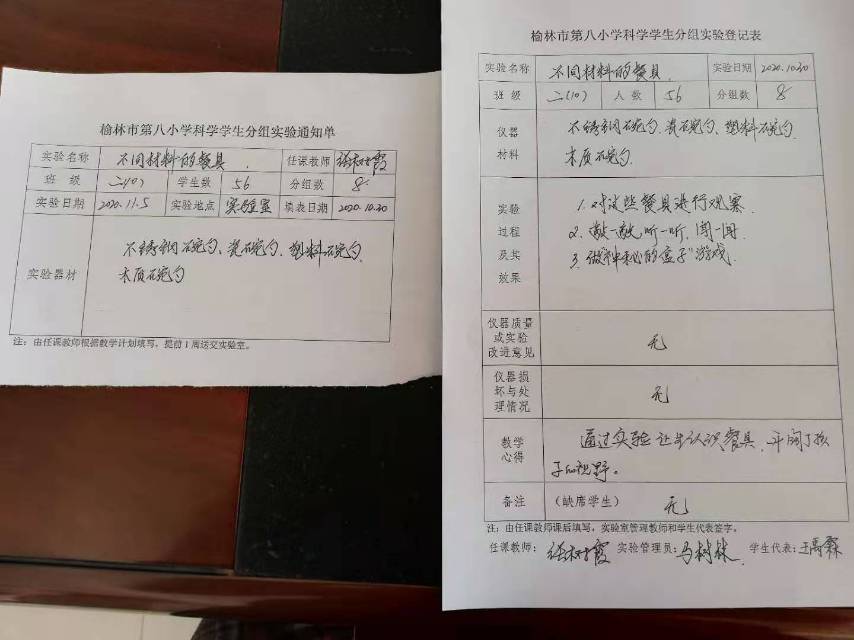 榆林市第八小学科学学生分组实验通知单
实验名称 不同材料的餐具. 任课教师
班 级 二(10) 学生数 56 分组数 8
实验日期 2020.11.5 实验地点 实验室 填表日期 2020.10.30
不锈钢碗勺、瓷碗勺、塑料碗勺、
实验器材 木质碗勺
注：由任课教师根据教学计划填写，提前1周送交实验室。
榆林市第八小学科学学生分组实验登记表
实验名称 不同材料的餐具. 实验日期 2020.10.30
班 级 二(10) 人 数 56 分组数 8
仪器 不锈钢碗勺、瓷碗勺、塑料碗勺、
材料 木质碗勺.
实验 1.对这些餐具进行观察.
过程 2.敲一敲,听一听,闻一闻.
及其 3.做"神秘的盒子"游戏.
效果
仪器质量
或实验 无
改进意见
仪器损
坏与处 无
理情况
教学 通过实验让生认识餐具,开阔了孩
心得 子的视野。
备注 (缺席学生) 无
注：由任课教师课后填写，实验室管理教师和学生代表签字。
任课教师： 实验管理员：马树林 学生代表：